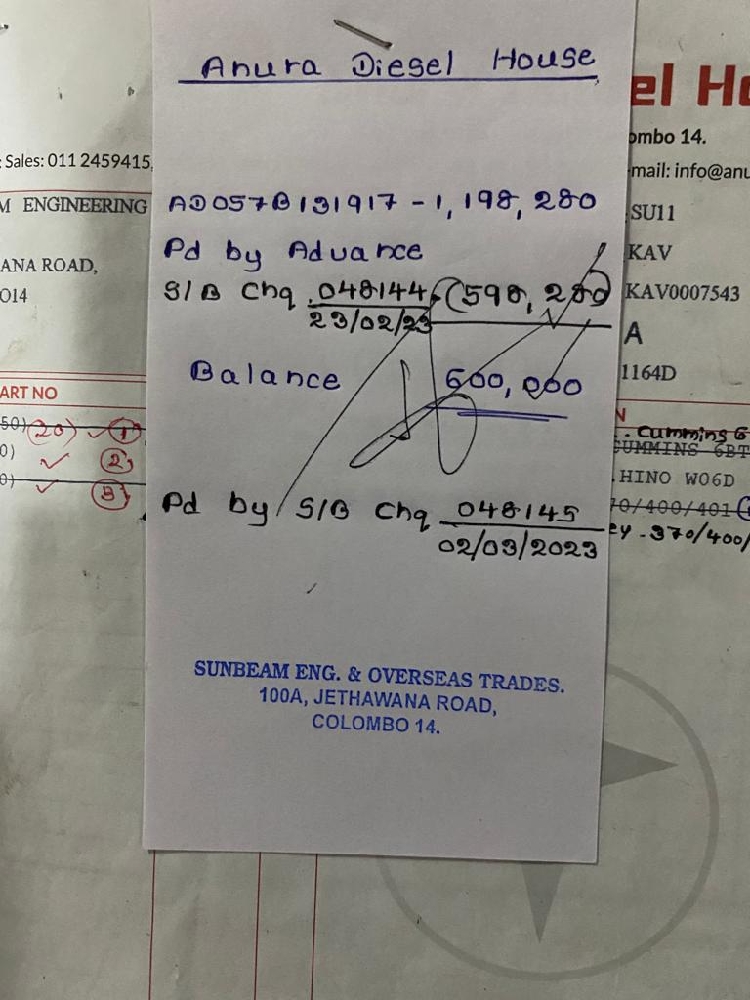 Anura Diesel House
el Ho
ombo 14.
: Sales: 011 2459415,
mail: info@anu
M ENGINEERING
AD057B131917 - 1,198,280
SU11
Pd by Advance
KAV
ANA ROAD,
O14
S/B Chq 048144 (598,280)
KAV0007543
23/02/23
A
Balance 600,000
1164D
ART NO
N
50) (20) 1
. Cummins 6
CUMMINS 6BT
0) 2
HINO WO6D
0) 3
70/400/401
Pd by S/B Chq 048145
ey - 370/400/
02/03/2023
SUNBEAM ENG. & OVERSEAS TRADES.
100A, JETHAWANA ROAD,
COLOMBO 14.